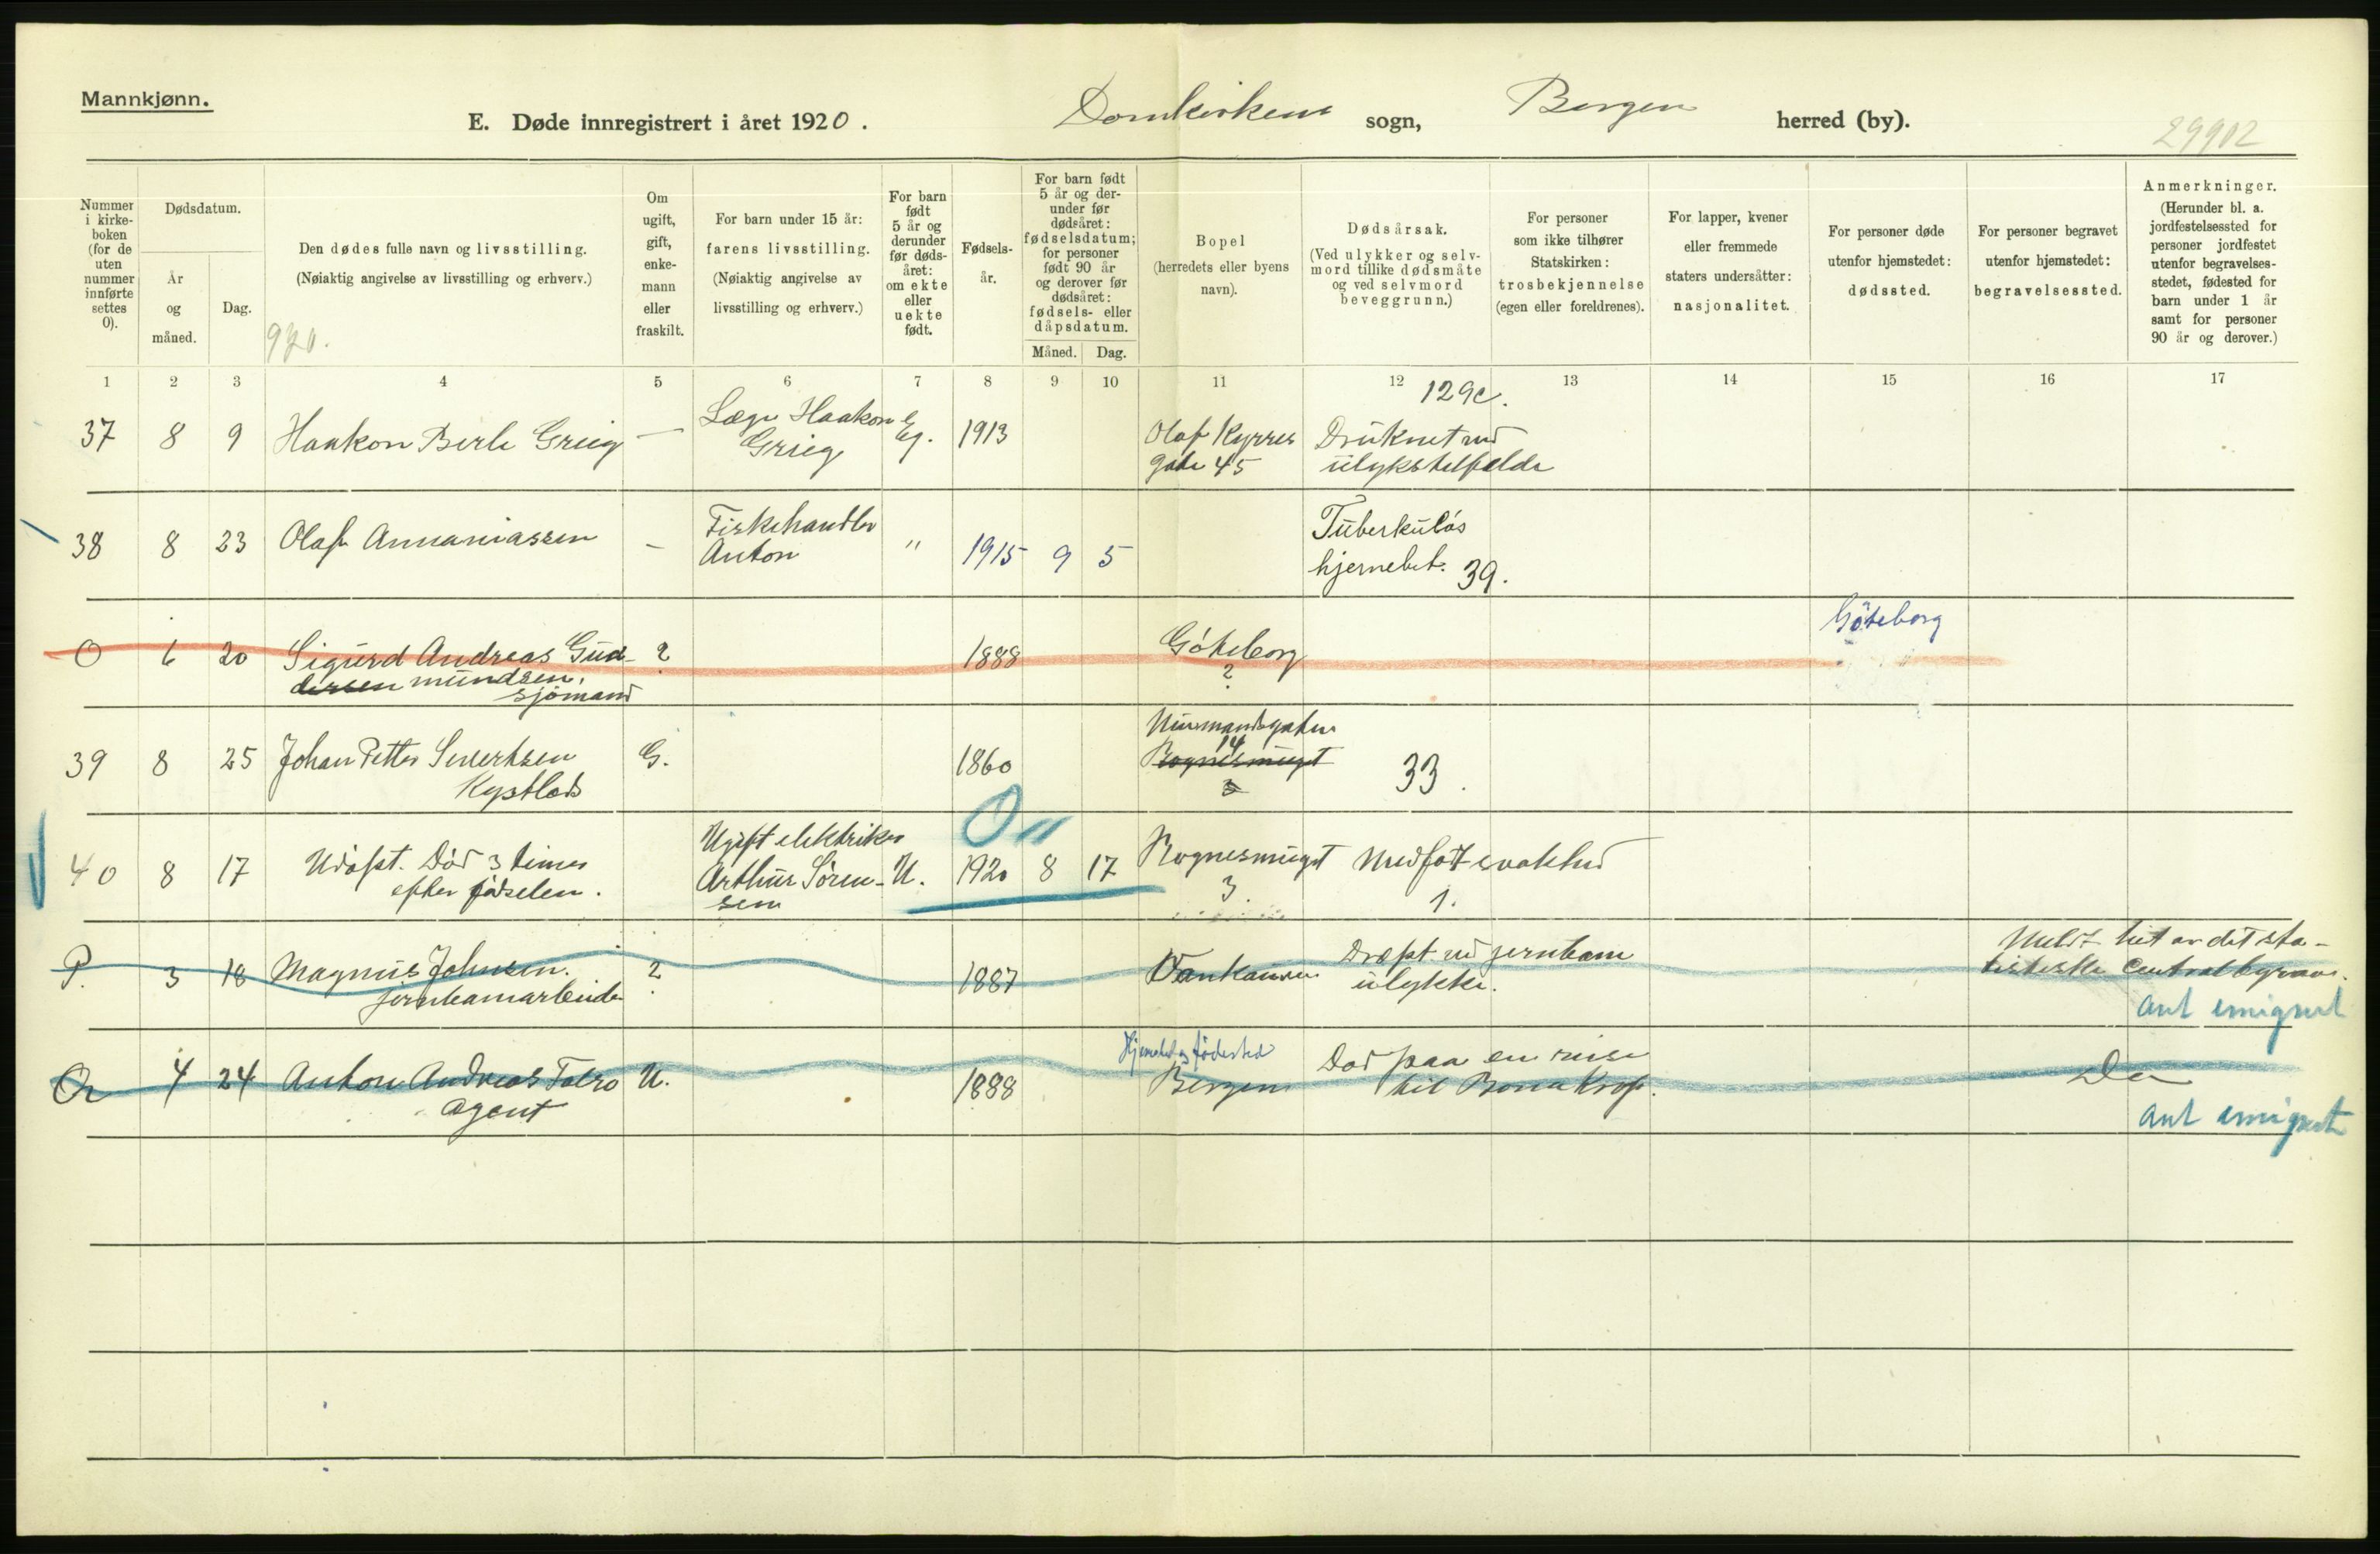 Mannkjønn.
E. Døde innregistrert i året 1920. Domkirkens sogn, Bergen herred (by).
29902
Nummer i kirke-boken (for de uten nummer innførte settes 0).
Dødsdatum.
År og måned.
Dag.
Den dødes fulle navn og livsstilling.
(Nøiaktig angivelse av livsstilling og erhverv.)
920.
Om ugift, gift, enke-mann eller fraskilt.
For barn under 15 år:
farens livsstilling.
(Nøiaktig angivelse av
livsstilling og erhverv.)
For barn født 5 år og derunder før døds-året: om ekte eller uekte født.
Fødsels-år.
For barn født 5 år og der-under før dødsåret: fødselsdatum; for personer født 90 år og derover før dødsåret: fødsels- eller dåpsdatum.
Måned. Dag.
Bopel
(herredets eller byens navn).
Dødsårsak.
(Ved ulykker og selv-mord tillike dødsmåte og ved selvmord beveggrunn.)
For personer som ikke tilhører Statskirken: trosbekjennelse (egen eller foreldrenes).
For lapper, kvener eller fremmede staters undersåtter: nasjonalitet.
For personer døde utenfor hjemstedet: dødssted.
For personer begravet utenfor hjemstedet: begravelsessted.
Anmerkninger.
(Herunder bl. a. jordfestelsessted for personer jordfestet utenfor begravelses-stedet, fødested for barn under 1 år samt for personer 90 år og derover.)
1 2 3 4 5 6 7 8 9 10 11 12 13 14 15 16 17
129c.
37 8 9 Haakon Berle Grieg — Læge Haakon Grieg Eg. 1913 Olaf Kyrres gate 45 Druknet ved ulykkstilfælde
38 8 23 Olaf Annaniassen - Fiskehandler Anton " 1915 9 5 Tuberkuløs hjernebet. 39.
0 6 20 Sigurd Andreas Gud- dersen mundsen, sjömand ? 1888 Göteborg ? Göteborg
39 8 25 Johan Petter Sivertsen Kystlods G. 1860 Nurmandsgaten 14 Rognesmuget 3 33.
40 8 17 Udöpt. Död 3 timer efter födselen. Ugift elektriker Arthur Sören- sen U. 1920 8 17 Rognesmuget 3 Medfödt svakhed 1.
P. 3 18 Magnus Johnsen. jernbanearbeider ? 1887 Vankauver Dræpt ved jernbane ulykke. Meldt hit av det sta- tistiske Centralbyraa. ant emigrert
4 24 Anton Andreas Talro Agent U. 1888 Hjemsted og födested Bergen Död paa en reise til Do ant emigrert